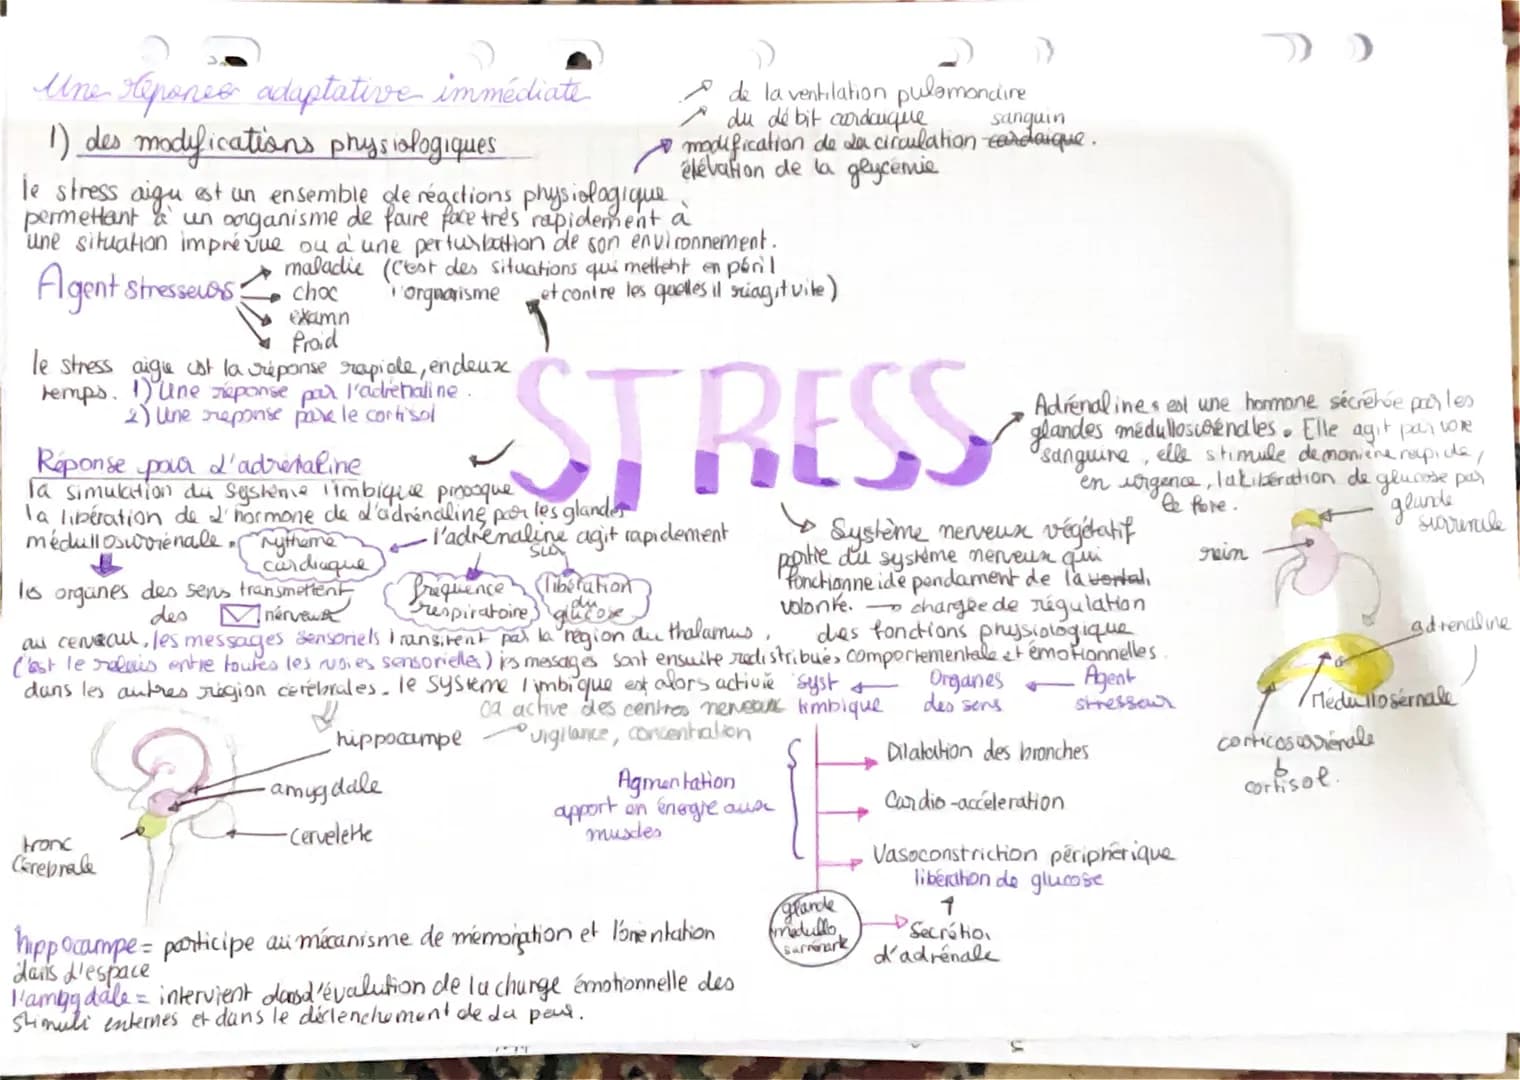 Une réponse adaptative immédiate
1) des modifications physiologiques
↗ de la ventilation pulomonaire
↗ du débit cardaique
sanguin
modification de la circulation cardaique.
élévation de la glycémie
le stress aigu est un ensemble de réactions physiologique
permettant à un oorganisme de faire face très rapidement à
une situation imprévue ou à une perturbation de son environnement.
Agent stresseurs
maladie (C'est des situations qui mettent en péril
choc l'orgnarisme et contre les quelles il réagit vite)
examn
froid
STRESS
le stress aigu est la réponse rapide, en deux
temps. 1) Une réponse par l'adrénaline.
2) Une réponse par le cortisol
Réponse par l'adrénaline
la simulation du système limbique provoque
la libération de l'hormone de l'adrénaline par les glandes
médullosurrénale.
l'adrénaline agit rapidement
sur
rytheme
cardiaque
fréquence
respiratoire
libération
du
glucose
les organes des sens transmettent
des ✉ nerveux
au cerveau, les messages sensoriels transitent par la région du thalamus,
(c'est le relais entre toutes les voies sensorielles) les messages sont ensuite redistribués
dans les autres région cérébrales. le système limbique est alors activé
ça active des centres nerveux
vigilance, concentration
hippocampe
amygdale
cervelette
tronc
Cérébrale
hippocampe = participe au mécanisme de mémorisation et l'orientation
dans l'espace
l'amygdale = intervient dans l'évalution de la charge émotionnelle des
stimuli externes et dans le déclenchement de la peur.
Adrénaline est une hormone sécrétée par les
glandes médullosurrénales. Elle agit par voie
sanguine, elle stimule de manière rapide,
en urgence, la libération de glucose par
le foie.
glande
surrénale
rein
adrenaline
Médullosérnale
corticosurrénale
↓
cortisol.
Système nerveux végétatif
partie du système nerveux qui
fonctionne idépendament de la
volonté. → chargée de régulation
des fonctions physiologique
comportementale et émotionnelles
syst ← Organes ← Agent
limbique des sens stresseur
Agmentation
apport en énergie aux
muscles
Dilatation des bronches
Cardio-accéleration
Vasoconstriction périphérique
libération de glucose
↑
Secrétion
d'adrénale
glande
médullo